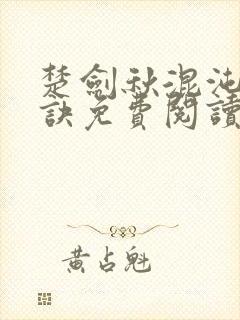 楚劍秋混沌
訣免費閱讀
黃占魁